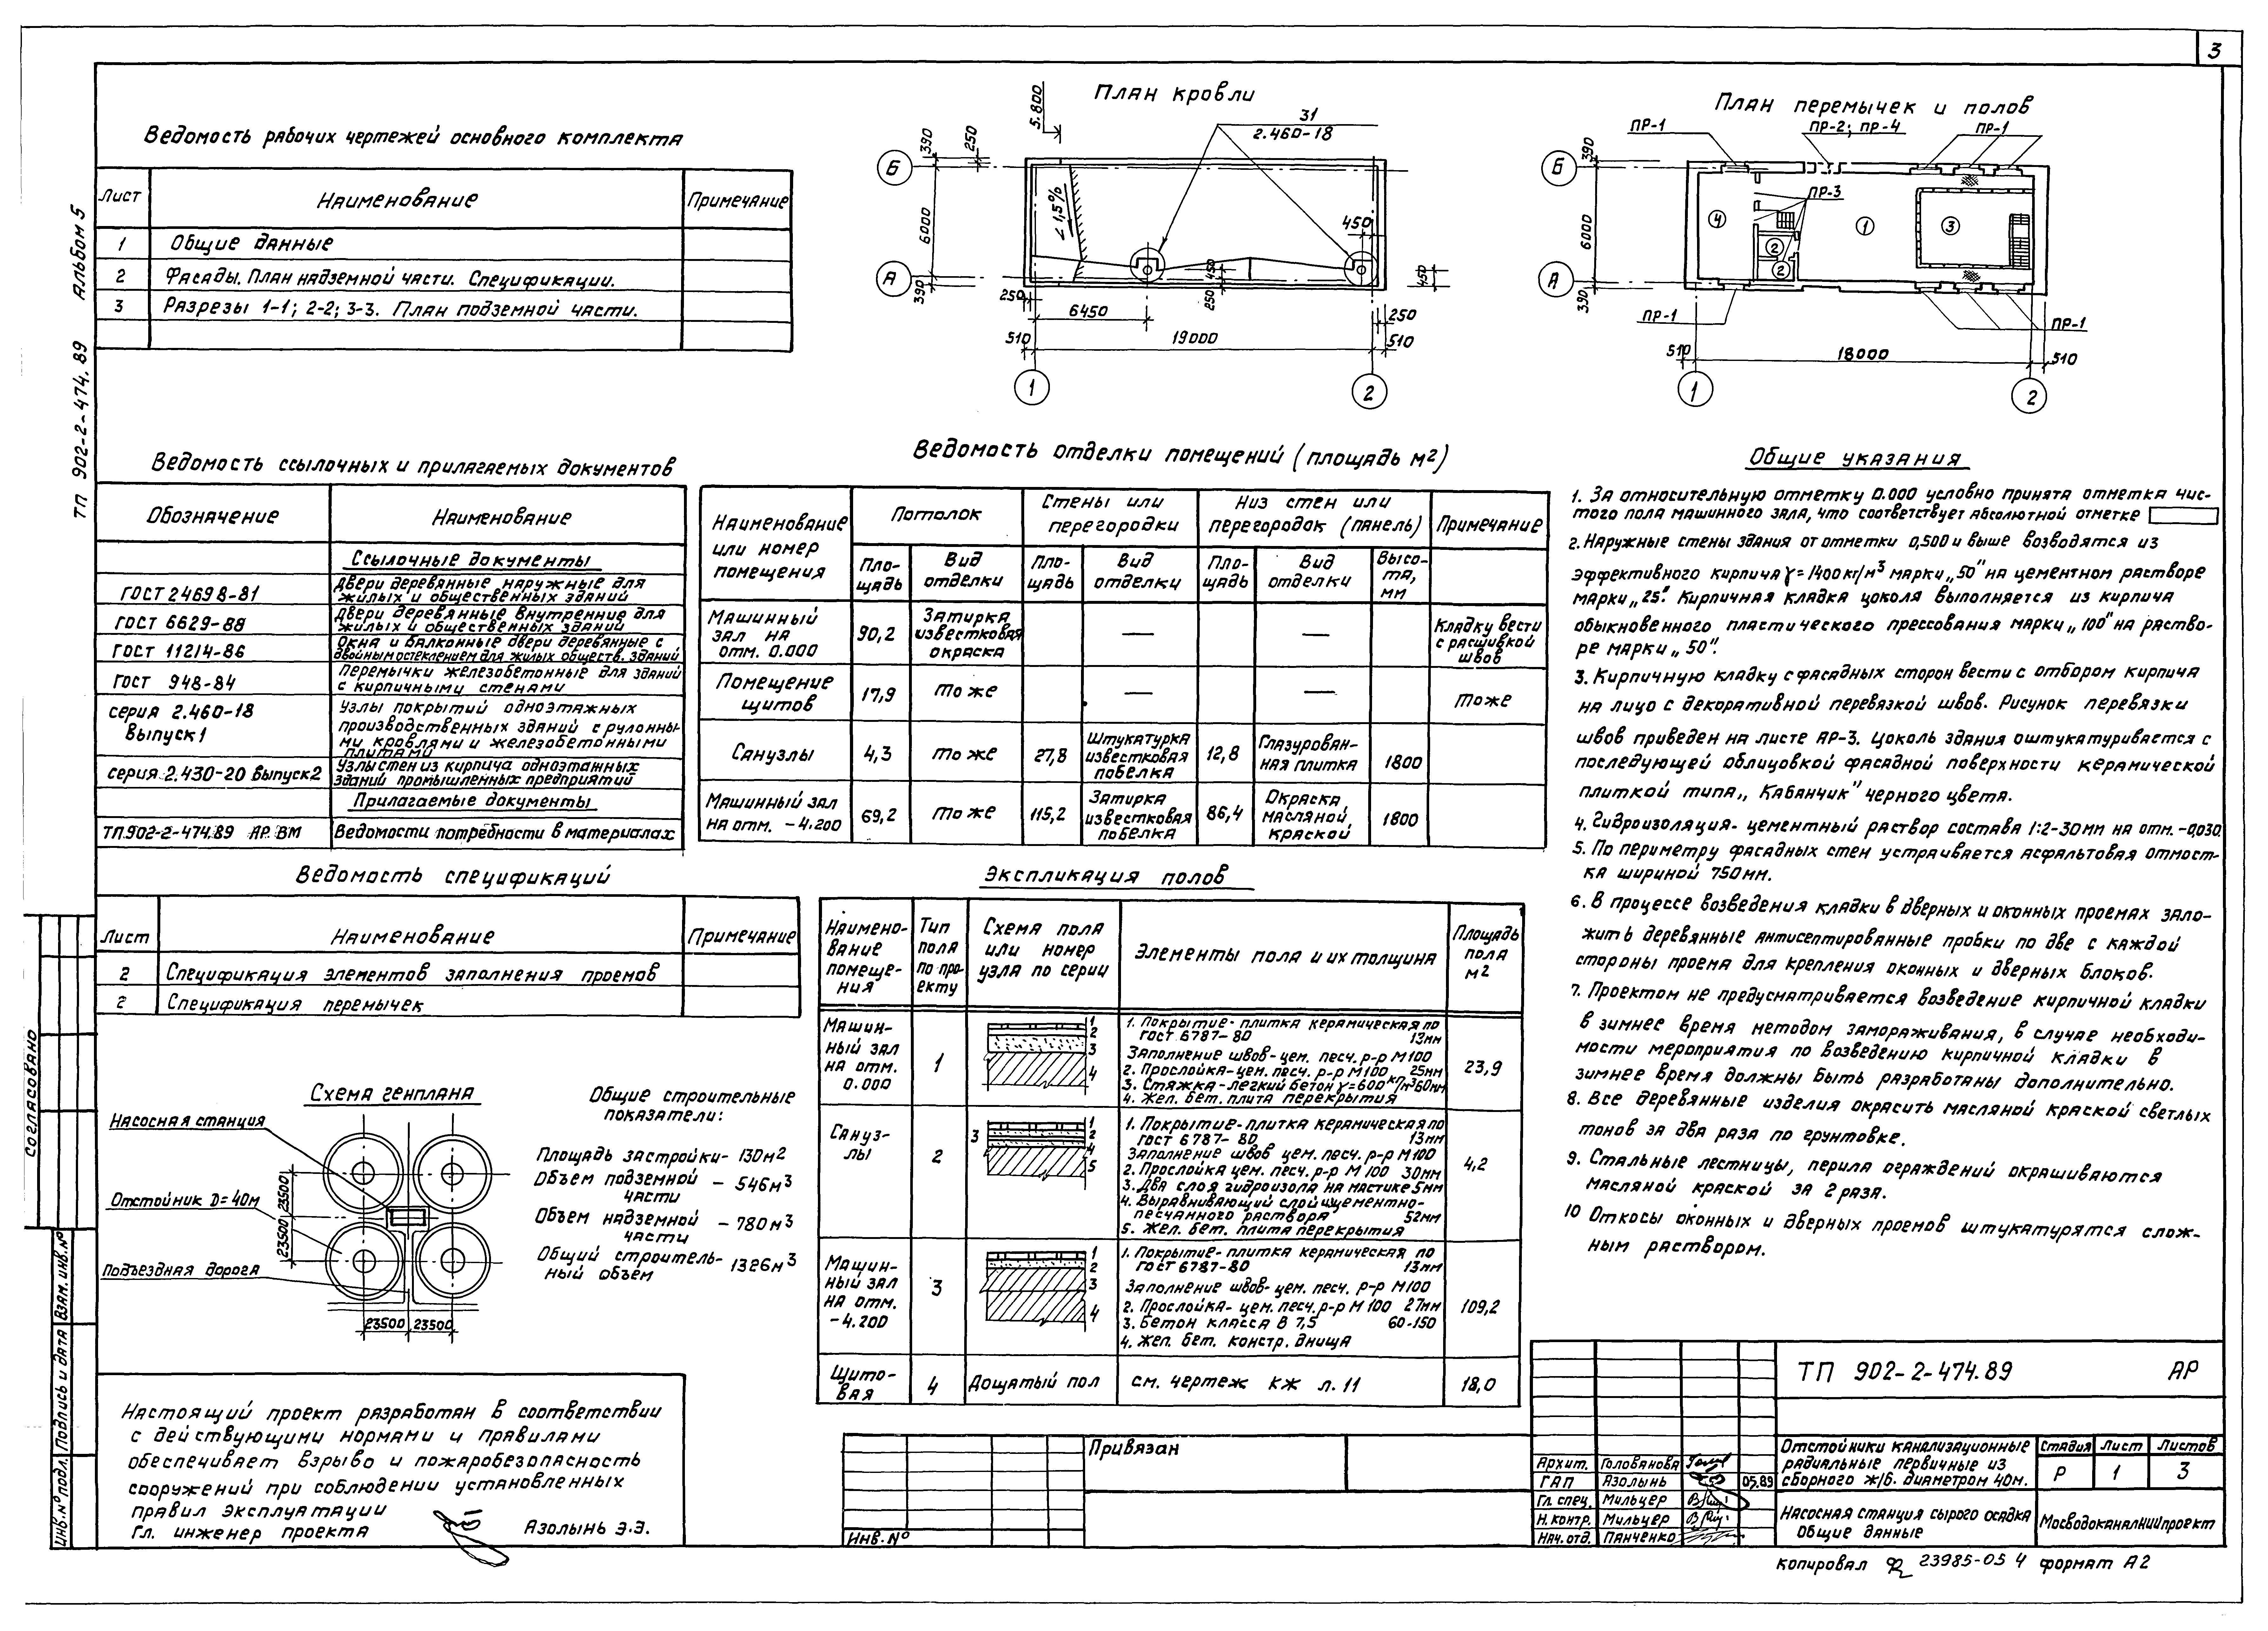 3
ТП 902-2-474.89 Альбом 5
Ведомость рабочих чертежей основного комплекта
Лист Наименование Примечание
1 Общие данные
2 Фасады. План надземной части. Спецификации.
3 Разрезы 1-1; 2-2; 3-3. План подземной части.
План кровли
5.800
31
2.460-18
390 250
Б
6000
< 1,5%
450
А
390
250
450
250
450
6450
250
510 19000 510
1 2
План перемычек и полов
ПР-1 ПР-2; ПР-4 ПР-1
390
Б
ПР-3
6000
4 1 3
2
2
А
390
ПР-1 ПР-1
510 18000 510
1 2
Ведомость ссылочных и прилагаемых документов
Обозначение Наименование
Ссылочные документы
ГОСТ 24698-81 Двери деревянные наружные для
жилых и общественных зданий
ГОСТ 6629-88 Двери деревянные внутренние для
жилых и общественных зданий
ГОСТ 11214-86 Окна и балконные двери деревянные с
двойным остеклением для жилых обществ. зданий
ГОСТ 948-84 Перемычки железобетонные для зданий
с кирпичными стенами
серия 2.460-18 Узлы покрытий одноэтажных
выпуск 1 производственных зданий с рулонны-
ми кровлями и железобетонными
плитами
серия 2.430-20 выпуск2 Узлы стен из кирпича одноэтажных
зданий промышленных предприятий
Прилагаемые документы
ТП902-2-474.89 АР.ВМ Ведомости потребности в материалах
Ведомость отделки помещений (площадь м2)
Наименование или номер помещения Потолок Стены или перегородки Низ стен или перегородок (панель) Примечание
Площадь Вид отделки Площадь Вид отделки Площадь Вид отделки Высота, мм
Машинный зал на отм. 0.000 90,2 Затирка известковая окраска — — Кладку вести с расшивкой швов
Помещение щитов 17,9 То же — — То же
Санузлы 4,3 То же 27,8 Штукатурка известковая побелка 12,8 Глазурован-ная плитка 1800
Машинный зал на отм. -4.200 69,2 То же 115,2 Затирка известковая побелка 86,4 Окраска масляной краской 1800
Общие указания
1. За относительную отметку 0.000 условно принята отметка чис-
того пола машинного зала, что соответствует абсолютной отметке
2. Наружные стены здания от отметки 0,500 и выше возводятся из
эффективного кирпича γ=1400кг/м3 марки „50" на цементном растворе
марки „25". Кирпичная кладка цоколя выполняется из кирпича
обыкновенного пластического прессования марки „100" на раство-
ре марки „50".
3. Кирпичную кладку с фасадных сторон вести с отбором кирпича
на лицо с декоративной перевязкой швов. Рисунок перевязки
швов приведен на листе АР-3. Цоколь здания оштукатуривается с
последующей облицовкой фасадной поверхности керамической
плиткой типа „Кабанчик" черного цвета.
4. Гидроизоляция- цементный раствор состава 1:2-30мм на отм. -0,030.
5. По периметру фасадных стен устраивается асфальтовая отмост-
ка шириной 750мм.
6. В процессе возведения кладки в дверных и оконных проемах зало-
жить деревянные антисептированные пробки по две с каждой
стороны проема для крепления оконных и дверных блоков.
7. Проектом не предусматривается возведение кирпичной кладки
в зимнее время методом замораживания, в случае необходи-
мости мероприятия по возведению кирпичной кладки в
зимнее время должны быть разработаны дополнительно.
8. Все деревянные изделия окрасить масляной краской светлых
тонов за два раза по грунтовке.
9. Стальные лестницы, перила ограждений окрашиваются
масляной краской за 2 раза.
10 Откосы оконных и дверных проемов штукатурятся слож-
ным раствором.
Ведомость спецификаций
Лист Наименование Примечание
2 Спецификация элементов заполнения проемов
2 Спецификация перемычек
Схема генплана
Насосная станция
Отстойник D=40м
Подъездная дорога
23500
23500
23500 23500
Общие строительные
показатели:
Площадь застройки- 130м2
Объем подземной части - 546м3
Объем надземной части - 780м3
Общий строитель-ный объем - 1326м3
Экспликация полов
Наимено-вание помеще-ния Тип пола по про-екту Схема пола или номер узла по серии Элементы пола и их толщина Площадь пола м2
Машин-ный зал на отм. 0.000 1
1 2 3 4
1. Покрытие- плитка керамическая по
ГОСТ 6787-80 13мм
Заполнение швов-цем. песч. р-р М100
2. Прослойка-цем. песч. р-р М100 25мм
3. Стяжка-легкий бетон γ=600кг/м3 60мм
4. Жел. бет. плита перекрытия
23,9
Сануз-лы 2
1 2 3 4 5
1. Покрытие-плитка керамическая по
ГОСТ 6787-80 13мм
Заполнение швов цем. песч. р-р М100
2. Прослойка цем. песч. р-р М 100 30мм
3. Два слоя гидроизола на мастике 5мм
4. Выравнивающий слой цементно-
песчанного раствора 52мм
5. Жел. бет. плита перекрытия
4,2
Машин-ный зал на отм. -4.200 3
1 2 3 4
1. Покрытие- плитка керамическая по
ГОСТ 6787-80 13мм
Заполнение швов- цем. песч. р-р М100
2. Прослойка- цем. песч. р-р М 100 27мм
3. Бетон класса В 7,5 60-150
4. Жел. бет. констр. днища
109,2
Щито-вая 4 Дощатый пол см. чертеж КЖ л. 11 18,0
Настоящий проект разработан в соответствии
с действующими нормами и правилами
обеспечивает взрыво и пожаробезопасность
сооружений при соблюдении установленных
правил эксплуатации
Гл. инженер проекта Азолынь Э.Э.
Согласовано
Инв.№ подл. Подпись и дата Взам. инв.№
Привязан
Инв.№
ТП 902-2-474.89 АР
Архит. Голованова
ГАП Азолынь 05.89
Гл. спец. Мильцер
Н. контр. Мильцер
Нач. отд. Панченко
Отстойники канализационные
радиальные первичные из
сборного ж/б. диаметром 40м.
Стадия Лист Листов
Р 1 3
Насосная станция сырого осадка
Общие данные
Мосводоканалниипроект
копировал 23985-05 4 формат А2